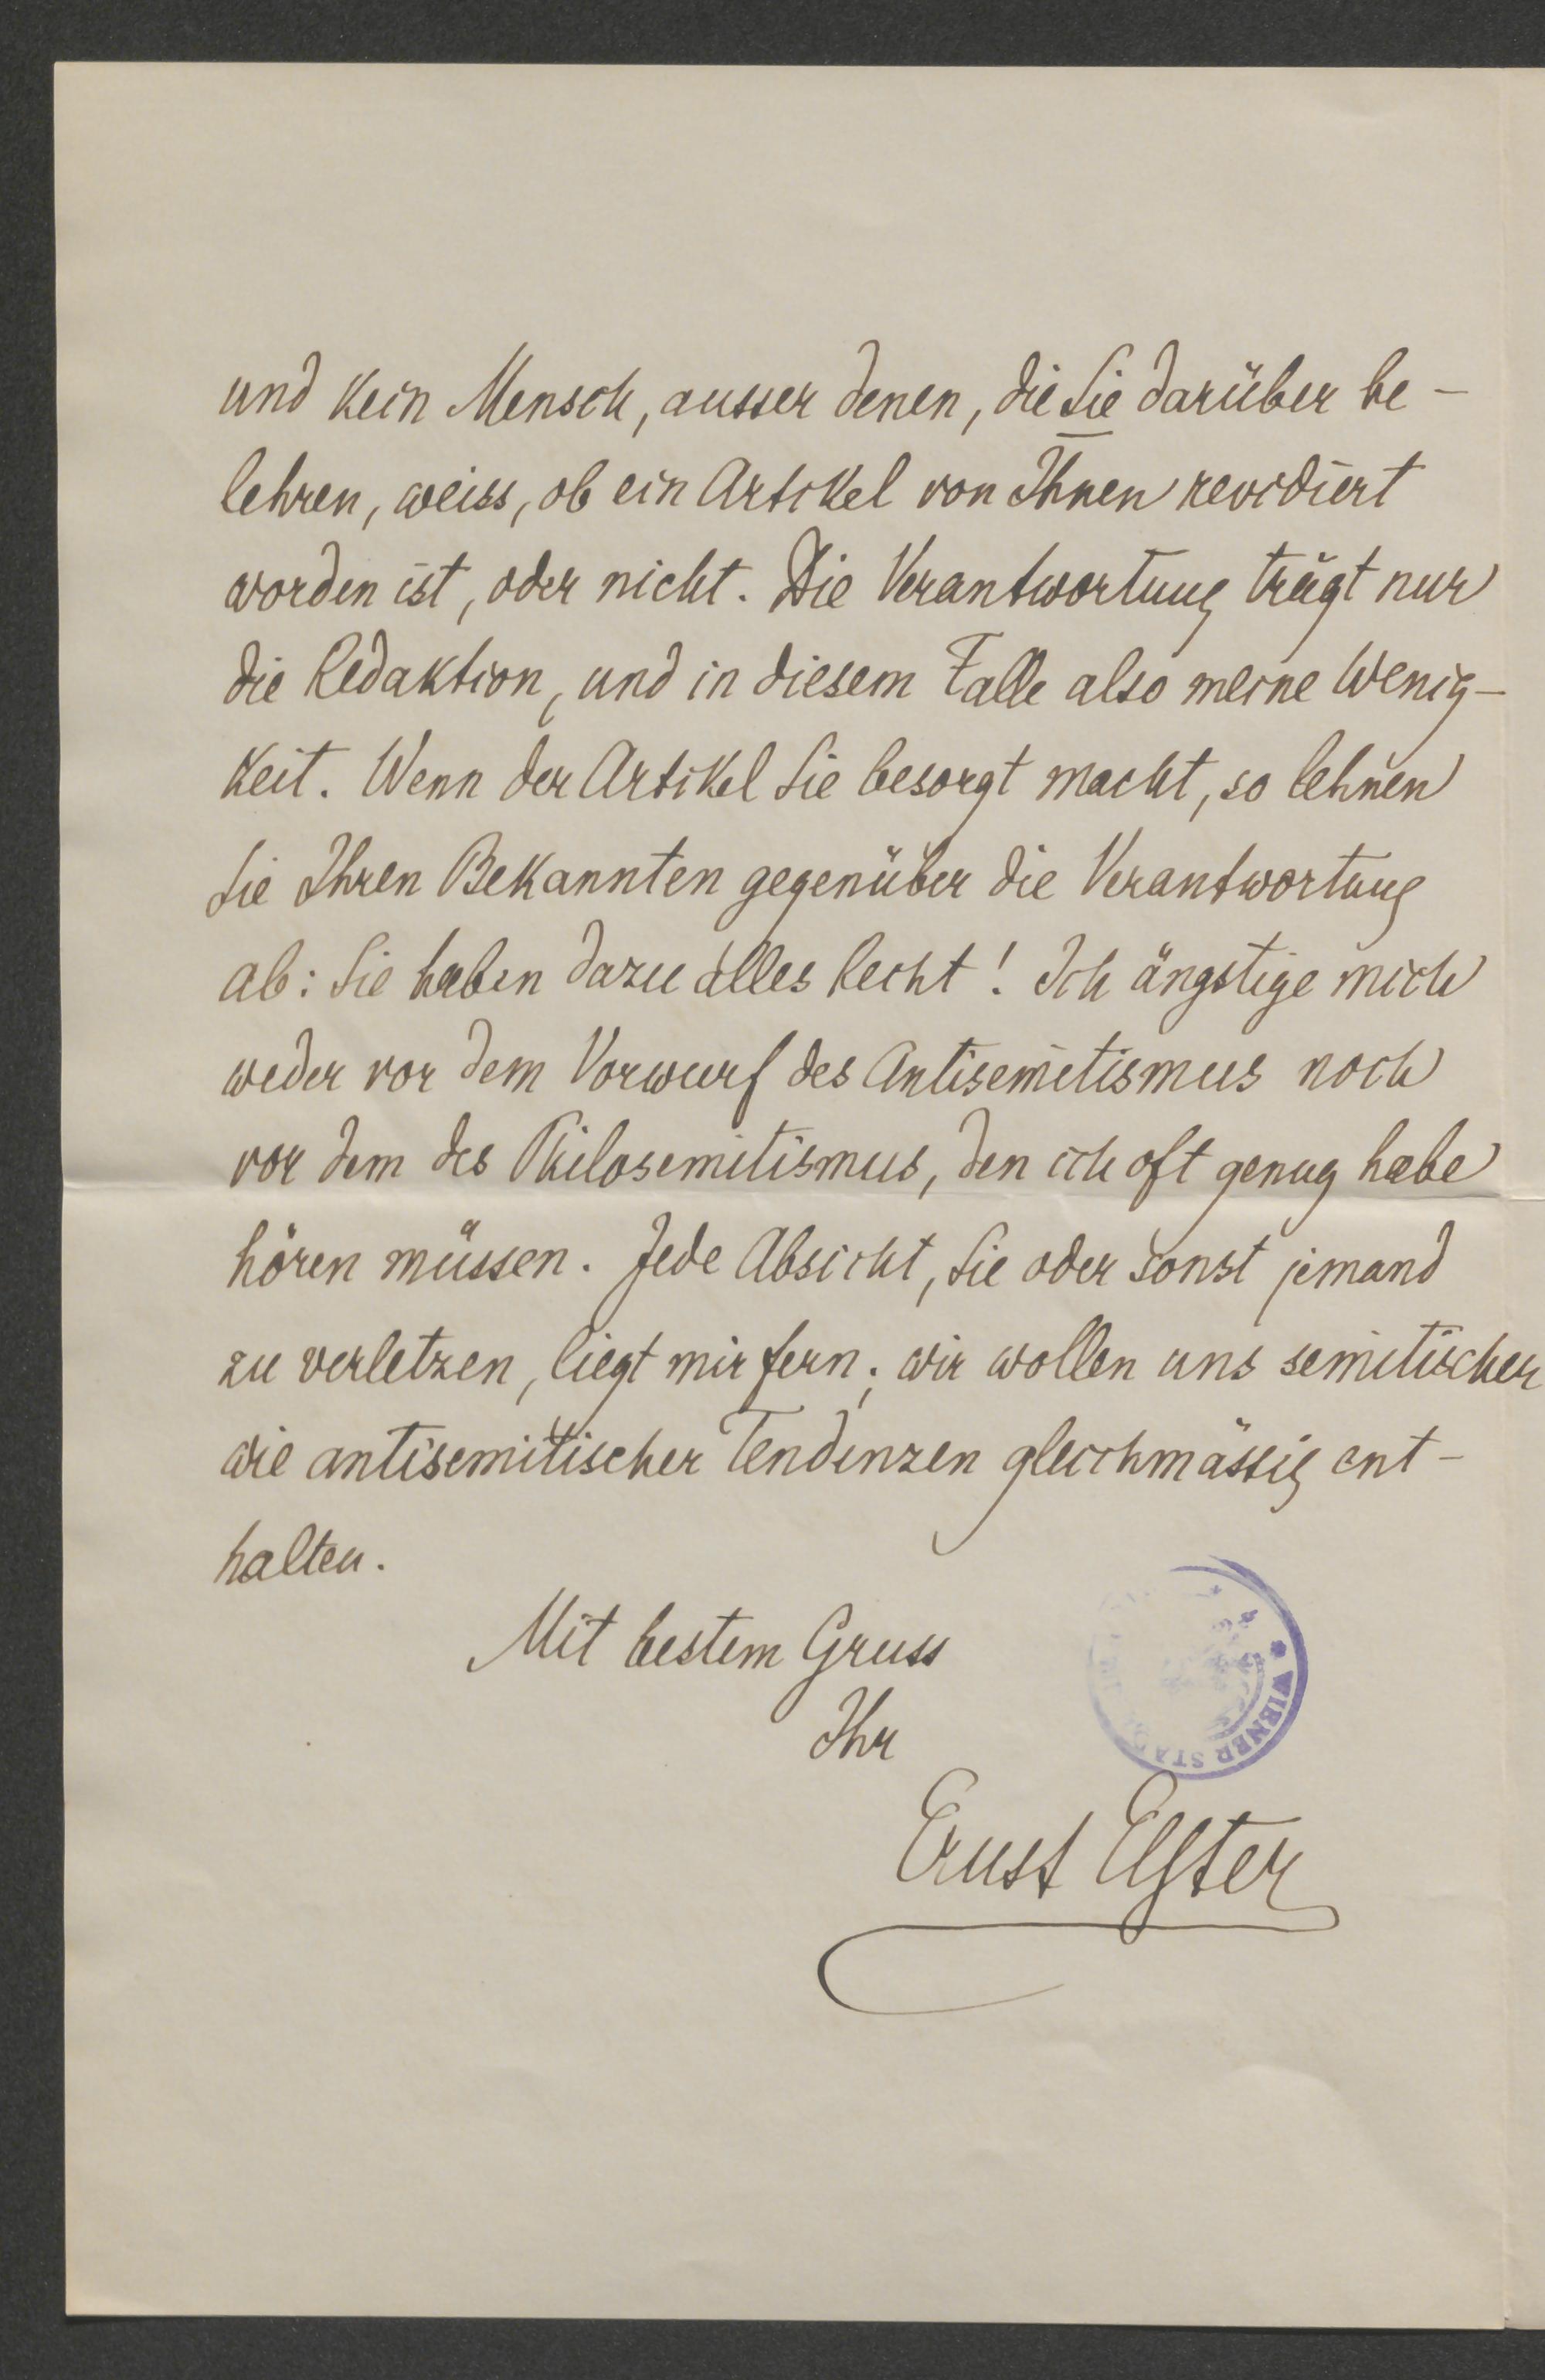 und kein Mensch, ausser denen, die Sie darüber be-
lehren, weiss, ob ein Artikel von Ihnen revidiert
worden ist, oder nicht. Die Verantwortung trägt nur
die Redaktion, und in diesem Falle also meine Wenig-
keit. Wenn der Artikel Sie besorgt macht, so lehnen
Sie Ihren Bekannten gegenüber die Verantwortung
ab: Sie haben dazu alles Recht! Ich ängstige mich
weder vor dem Vorwurf des Antisemitismus noch
vor dem des Philosemitismus, den ich oft genug habe
hören müssen. Jede Absicht, Sie oder sonst jemand
zu verletzen, liegt mir fern; wir wollen uns semitischer
wie antisemitischer Tendenzen gleichmässig ent-
halten.
Mit bestem Gruss
Ihr
WIENER
Ernst Elster